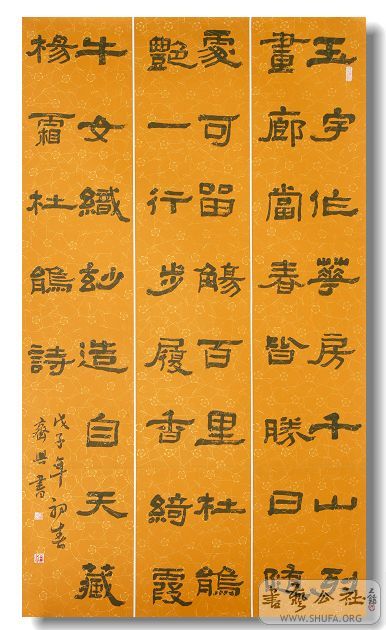 玉宇作華房千山列
畫廊當春皆勝日隨
處可畱觴百里杜鵑
艷一行步履香綺霞
牛女織玅造自天藏
楊霜杜鵑詩
戊子年初春
齊興書
WWW.SHUFA.ORG